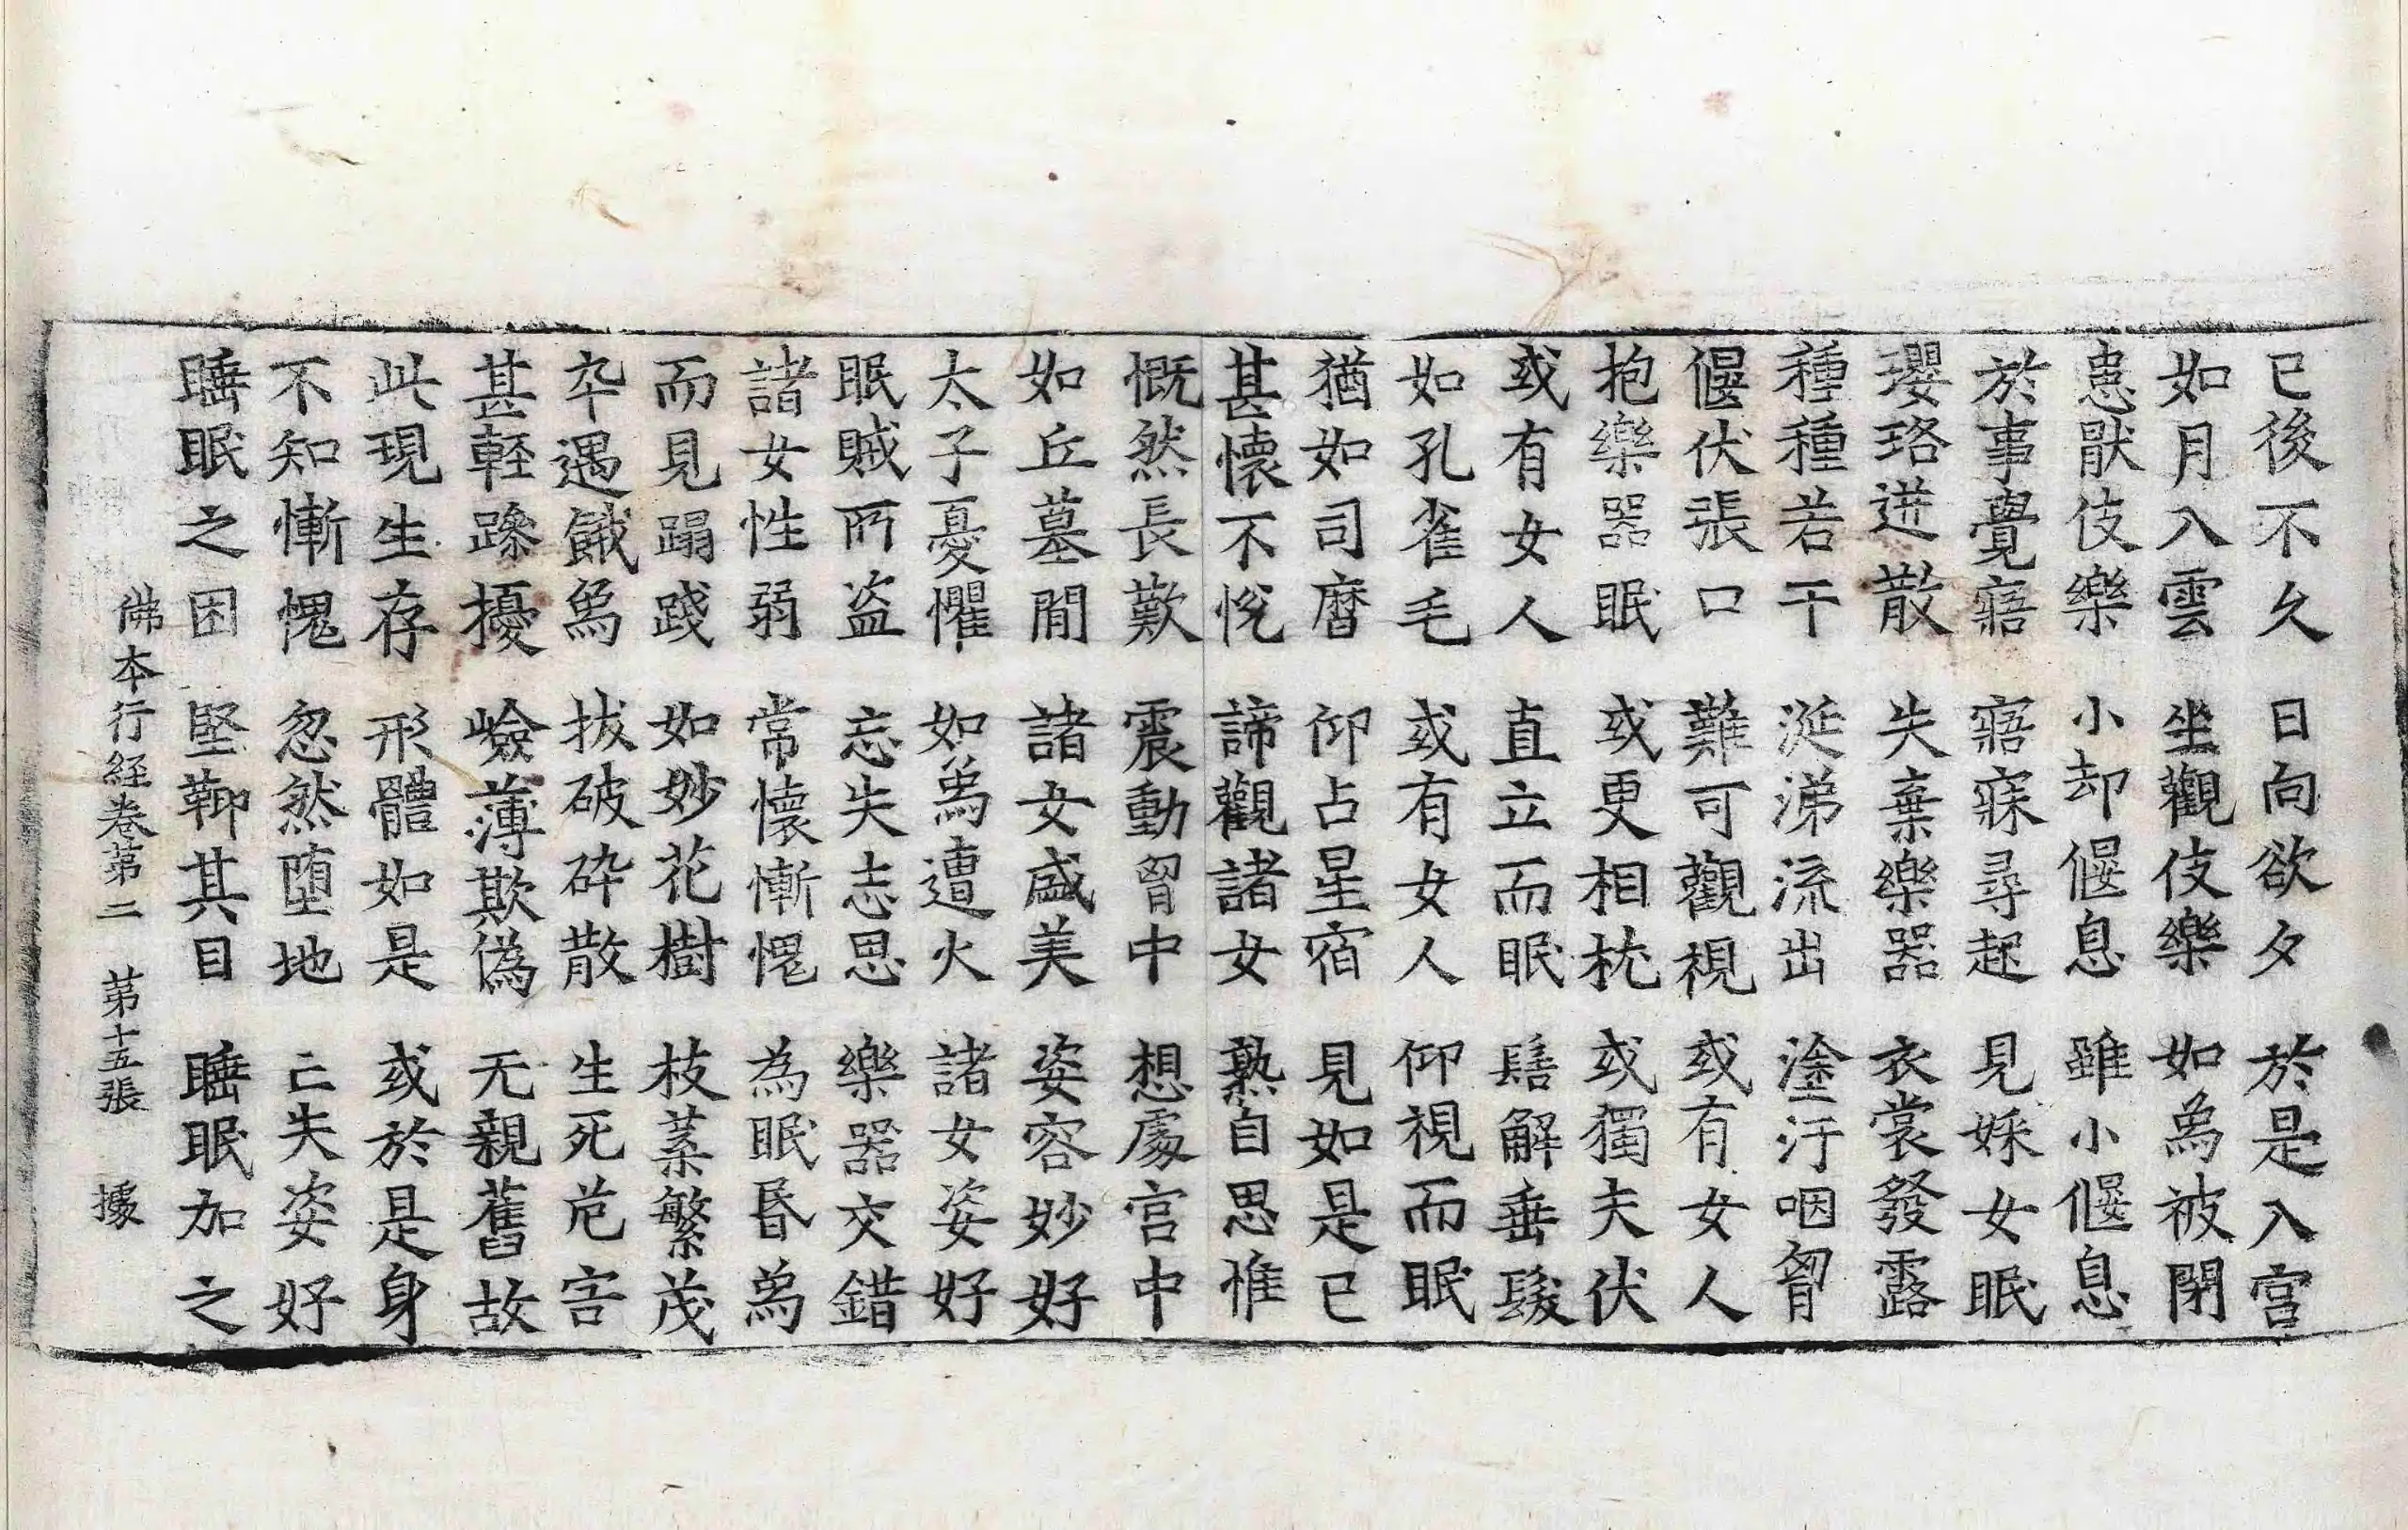 已後不久 日向欲夕 於是入宮
如月入雲 坐觀伎樂 如為被閉
患猒伎樂 小却偃息 雖小偃息
於事覺寤 寤寐尋起 見婇女眠
瓔珞迸散 失棄樂器 衣裳發露
種種若干 涎涕流出 塗汙咽𦚾
偃伏張口 難可觀視 或有女人
抱樂器眠 或更相枕 或獨夫伏
或有女人 直立而眠 髻解垂髮
如孔雀毛 或有女人 仰視而眠
猶如司曆 仰占星宿 見如是已
甚懷不悅 諦觀諸女 熟自思惟
慨然長歎 震動𦚾中 想處宮中
如丘墓間 諸女盛美 姿容妙好
太子憂懼 如為遭火 諸女姿好
眠賊所盜 忘失志思 樂器交錯
諸女性弱 常懷慚愧 為眠昬為
而見蹋踐 如妙花樹 枝葉繁茂
卒遇餓為 拔破碎散 生死危害
甚輕躁擾 嶮薄欺偽 无親舊故
此現生存 形體如是 或於是身
不知慚愧 忽然墮地 亡失姿好
睡眠之困 堅鞕其目 睡眠加之
佛本行經卷第二 第十五張 據